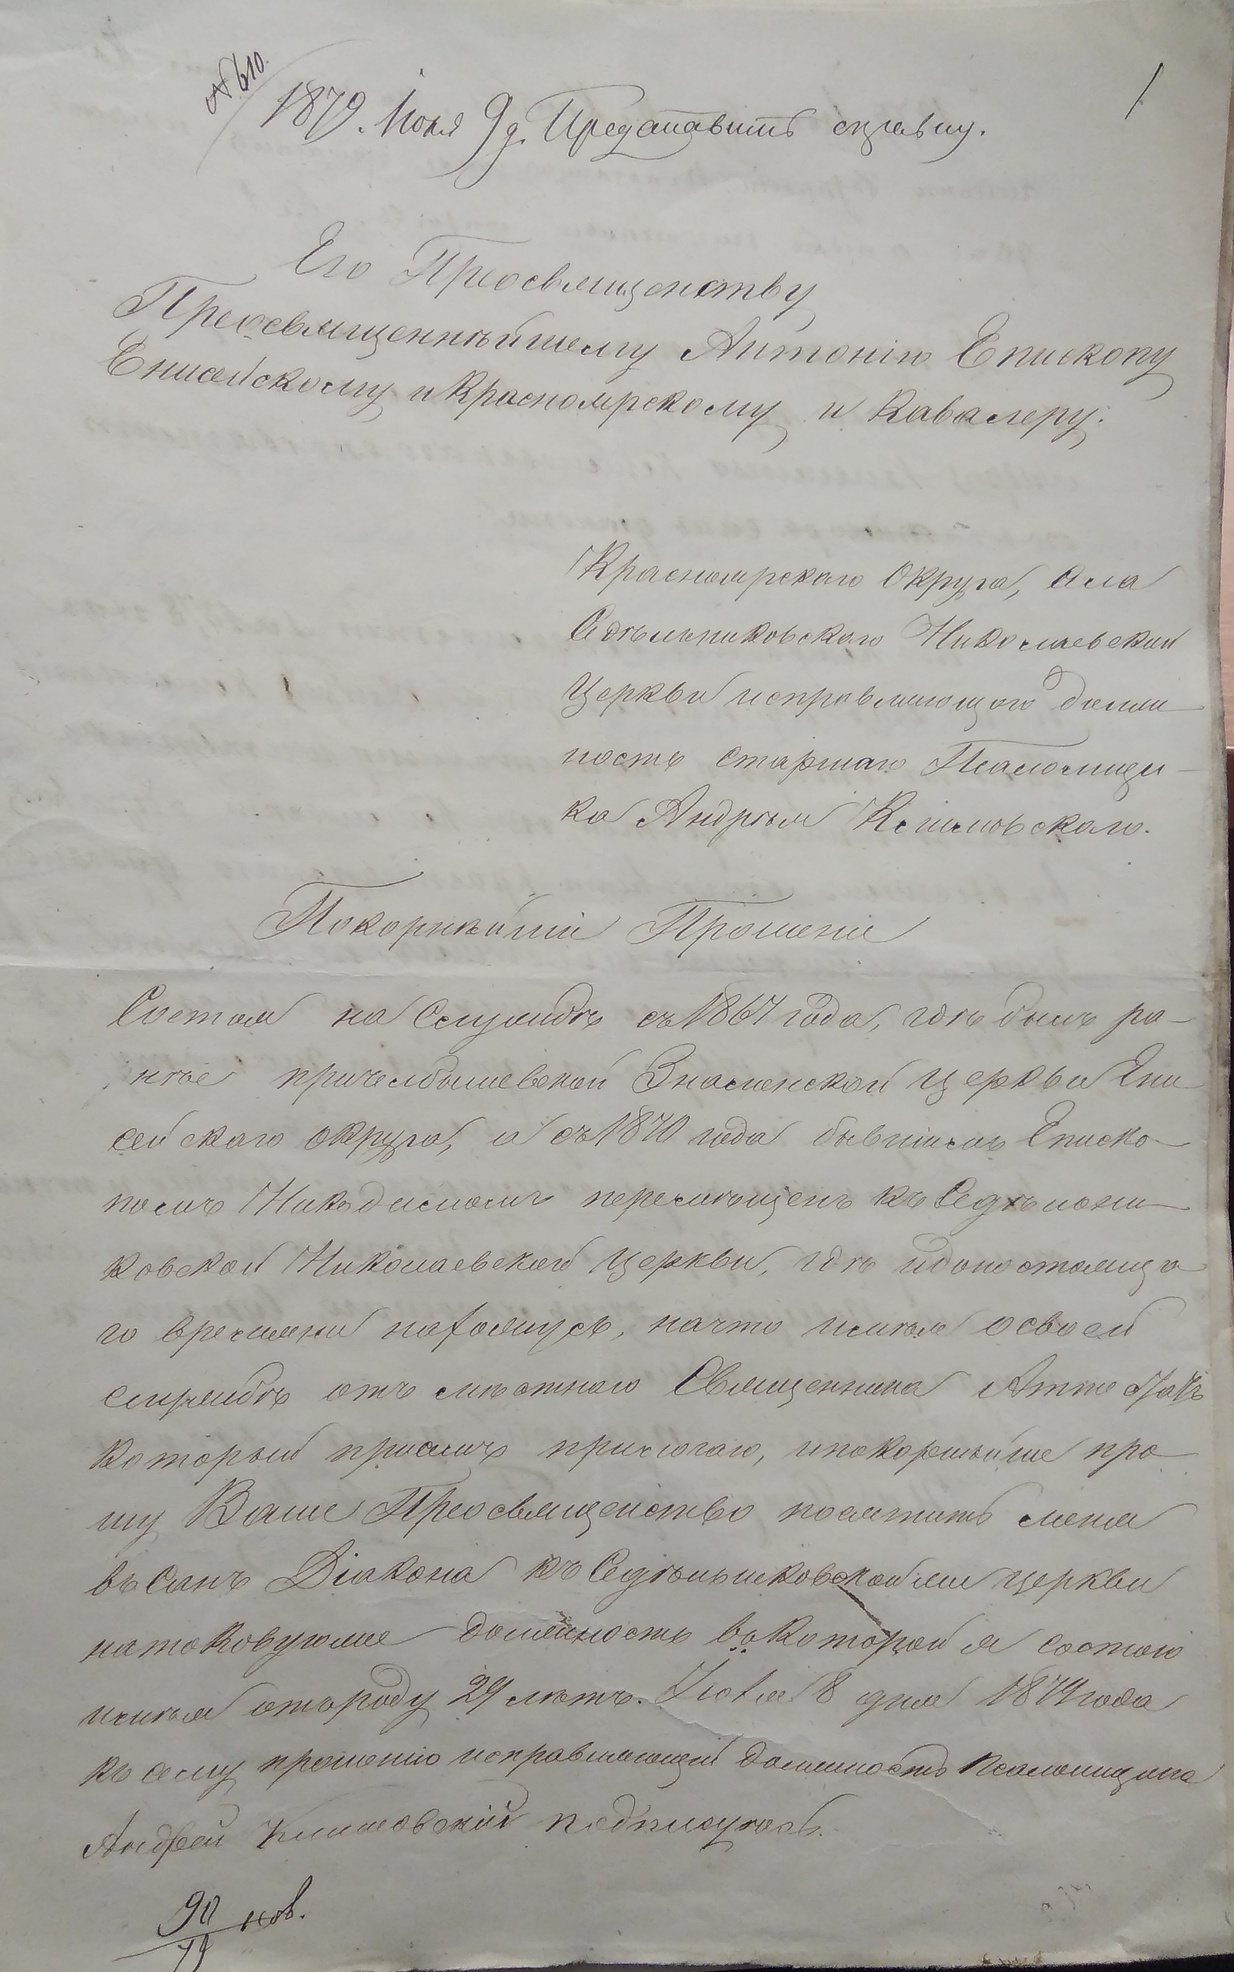 № 610.
1
1879. Июля 9 д. Представить справку.
Его Преосвященству
Преосвященнѣйшему Антонію Епископу
Енисейскому и Красноярскому и Кавалеру.
Красноярскаго Округа, села
Николаевской
Церкви исправляющаго долж
ность старшаго Псаломщи-
ка Андрея
Покорнѣйшее Прошеніе
Состоя на Службѣ съ 1867 года, гдѣ былъ ра-
нѣе Знаменской церкви Ени
сейскаго округа, а съ 1870 года бывшимъ Еписко-
помъ Никодимомъ перемѣщенъ къ
ковской Николаевской церкви, гдѣ идонастояща
го времени нахожусь, начто имѣя освоей
службѣ отъ мѣстнаго Священника
который присемъ прилагаю, ипокорнѣйше про-
шу Ваше Преосвященство посвятить меня
въ санъ Діакона къ церкви
натаковуюже должность вокоторой я состою
имѣя отъроду 29 лѣтъ. Іюля 8 дня 1879 года
къ сему прошенію исправляющій должность Псаломщика
Андрей подписуюсь.
90 нов.
79